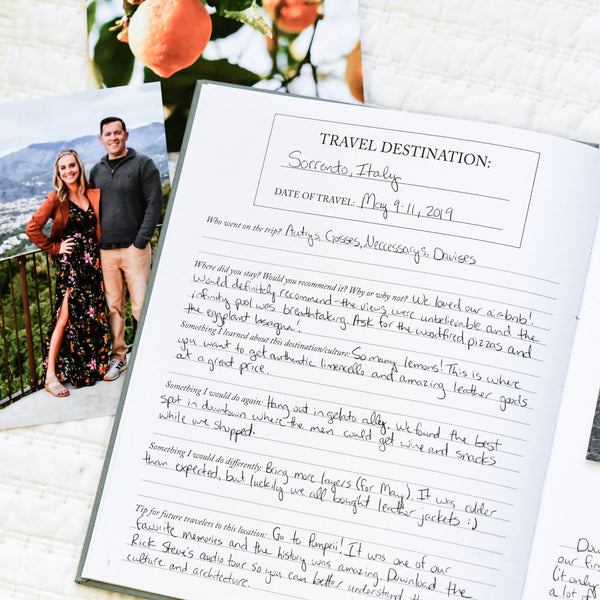 TRAVEL DESTINATION:
Sorrento, Italy
DATE OF TRAVEL: May 9-11, 2019
Who went on the trip? Autrys, Gosses, Neccessarys, Davises
Where did you stay? Would you recommend it? Why or why not? We loved our airbnb!
Would definitely recommend - the views were unbelievable and the
infinity pool was breathtaking. Ask for the woodfired pizzas and
the eggplant lasagna!
Something I learned about this destination/culture: So many lemons! This is where
you want to get authentic limencello and amazing leather goods
at a great price.
Something I would do again: Hang out in gelato alley. We found the best
spot in downtown where the men could get wine and snacks
while we shopped.
Something I would do differently: Bring more layers (for May). It was colder
than expected, but luckily we all bought leather jackets :)
Tip for future travelers to this location: Go to Pompeii! It was one of our
favorite memories and the history was amazing. Download the
Rick Steve's audio tour so you can better understand the
culture and architecture.
our firs
(it only
a lot of